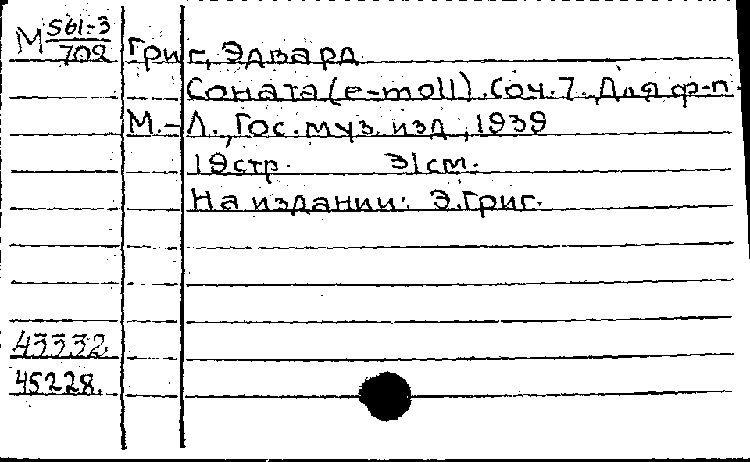 М 561-3
702 Григ, Эдвард
Соната (e-moll). Соч. 7. Для ф-п.
М.-Л., Гос. муз. изд, 1939
19 стр. 31 см.
На издании: Э. Григ.
43332
45228.